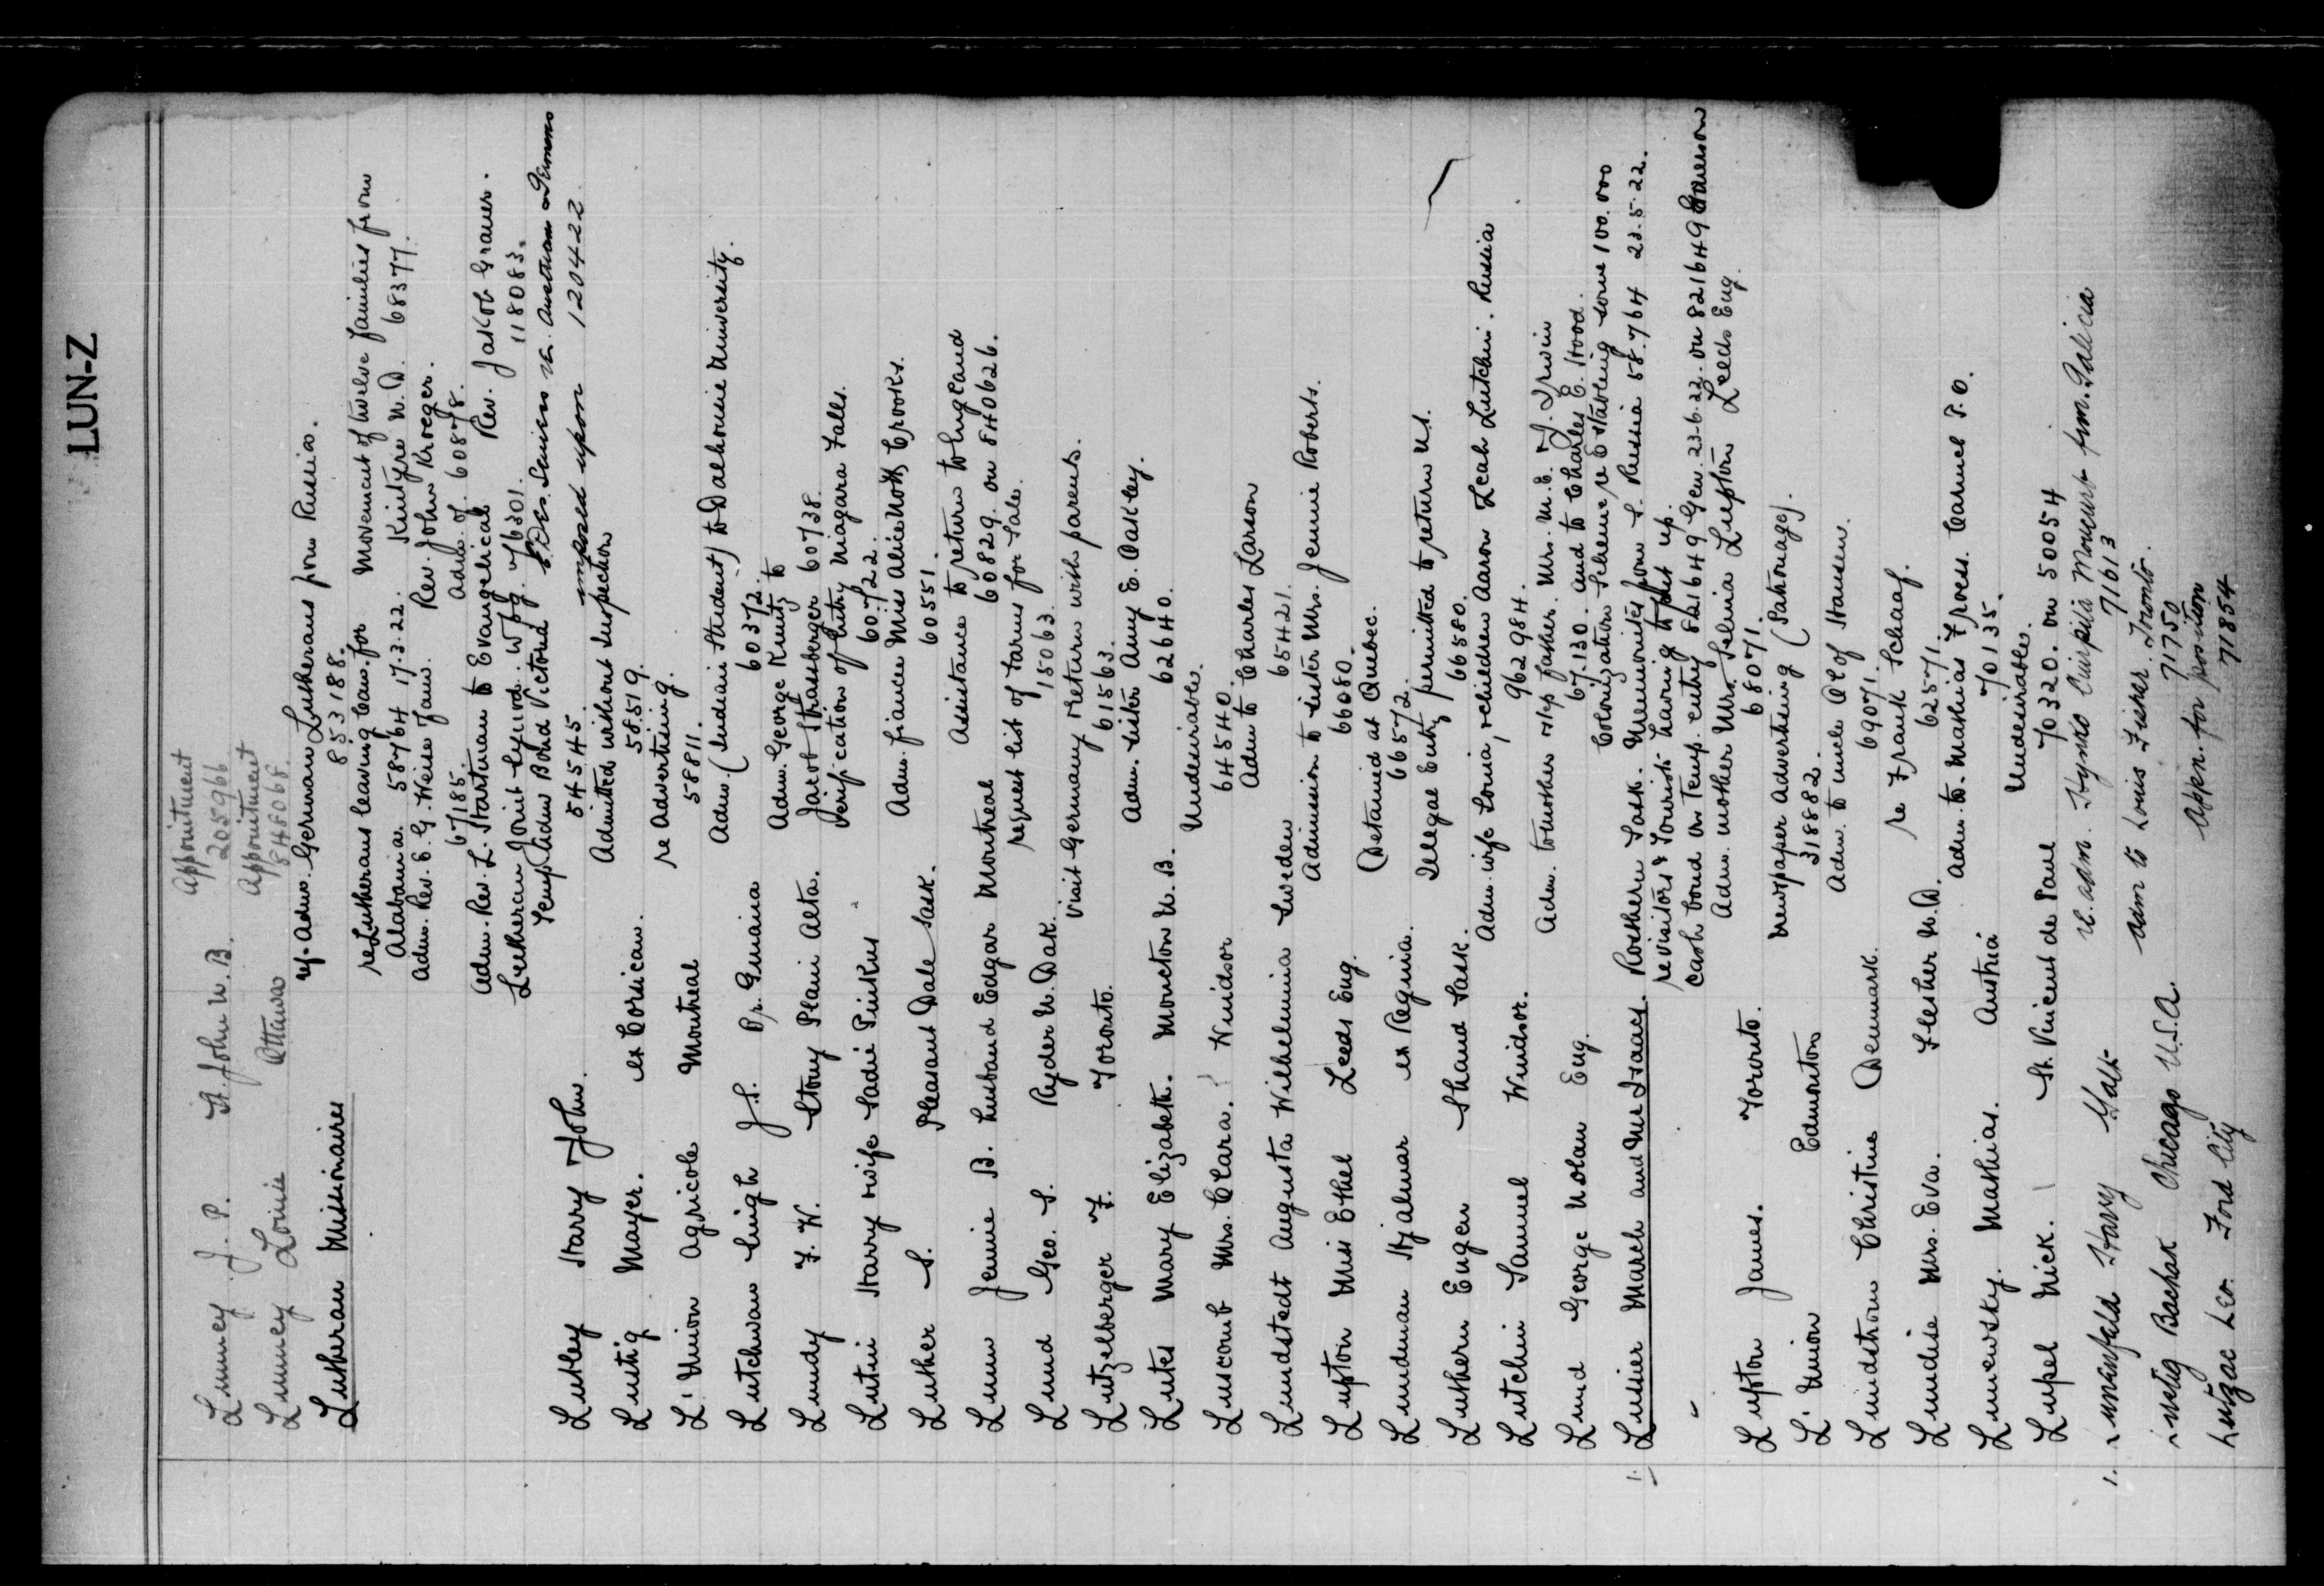 LUN-Z
Lunney J. P. St. John N.B. Appointment
205966
Lunney Louise Ottawa Appointment
848068
Lutheran Missionaires re. Adm. German Lutherans from Russia.
853188.
re Lutherans leaving Can. for Movement of twelve families from
Alabama. 58764 17.3.22. Kintyre N.D. 68377.
Adm. Rev. E. G. Weise fam. Rev. John Kroeger.
67185. Adm. of. 60878.
Adm. Rev. L. Startman to Evangelical Rev. Jakob Graner.
Lutheran Joint Synod. Wpg. 76301. 118083.
Temp. Adm Bond Victoria
imposed upon 120422
Lutley Harry John. 545545.
Admitted without Inspection
Lustig Mayer. ex Corsican. 58519.
re Advertising.
L'Union Agricole Montreal 58811.
Adm. (Indian Student) to Dalhousie University.
Lutchman Singh J.S. Br. Guiana 60372.
Adm. George Kuntz to
Lundy F. W. Stony Plain Alta. Jacob Strasberger 60738.
Verification of Entry Niagara Falls.
Lutin Harry wife Sadie Pinkus 60722.
Adm. fiancee Miss Alice Crooks.
Luther S. Pleasant Dale Sask. 60551.
Assistance to return to England
Lunn Jennie B. husband Edgar Montreal 60829. on 540626.
request list of farms for Sale.
Lund Geo. S. Ryder N. Dak. 15063.
Visit Germany return with parents.
Lutzelberger F. Toronto. 61563.
Adm. sister Amy E. Oakley.
Lutes Mary Elizabeth. Moncton N.B. 62640.
Undesirable.
Luscomb Mrs. Clara. Windsor 64540.
Adm to Charles Larson
Lundstedt Augusta Wilhelmina Sweden 65421.
Admission to sister Mrs. Jennie Roberts.
Lupton Miss Ethel Leeds Eng. 66080.
(Detained at Quebec.
Lundman Hjalmar ex Regina. 66572.
Illegal Entry permitted to return U.S.
Luthern Eugen Shand Sask. 66580.
Adm. wife Sonia, children Aaron Leah Lutchin. Russia
Lutchin Samuel Windsor. 962984.
Adm. to mother step father. Mrs. M. E. Irwin
Lund George Nolan Eng. 67.130. and to Charles E. Hood.
Colonization Scheme re Establing some 100.000
1. Lusier March and McIsaacs. Rosthern Sask. Mennonites from S. Russia 58.764 23.5.22.
re visitors & Tourists having to put up
" cash bond on Temp. entry 821649 Gen. 23.6.22. on 821649
Adm. mother Mrs. Selina Lupton Leeds Eng.
Lupton James. Toronto. 68071.
Newspaper Advertising (Patronage).
L'Union Edmonton 318882.
Adm. to uncle Ol of Hansen.
Lundstrom Christine Denmark. 69071.
re Frank Schaaf.
Lundise Mrs. Eva. Flesher N.D. 62571.
Adm. to. Mathias Froess. Carmel P.O.
Lunewsky. Mathias. Austria 70135.
Undesirable.
Lupel Nick. St. Vincent de Paul 70320. on 50054
1. Lunenfeld Harry Galt re. adm. Hynko movement from. Galicia
71613
Lustig Bachak Chicago U.S.A. adm to Louis Fisher. Toronto.
71750
Lutzac Leo. Ford City Appcn. for position
71854